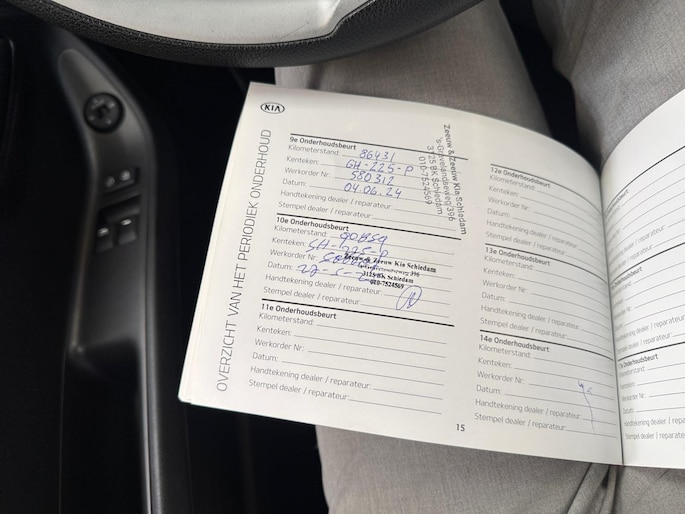 KIA
OVERZICHT VAN HET PERIODIEK ONDERHOUD
9e Onderhoudsbeurt
Kilometerstand: 86431
Kenteken: GH-225-P
Werkorder Nr: 580312
Datum: 04.06.24
Handtekening dealer / reparateur:
Stempel dealer / reparateur:
Zeeuw & Zeeuw Kia Schiedam
's-Gravelandseweg 396
3125 BK Schiedam
010-7524569
10e Onderhoudsbeurt
Kilometerstand: 90859
Kenteken: GH-225-P
Werkorder Nr:
Datum:
Handtekening dealer / reparateur:
Stempel dealer / reparateur:
Zeeuw & Zeeuw Kia Schiedam
's-Gravelandseweg 396
3125 BK Schiedam
010-7524569
11e Onderhoudsbeurt
Kilometerstand:
Kenteken:
Werkorder Nr:
Datum:
Handtekening dealer / reparateur:
Stempel dealer / reparateur:
12e Onderhoudsbeurt
Kilometerstand:
Kenteken:
Werkorder Nr:
Datum:
Handtekening dealer / reparateur:
Stempel dealer / reparateur:
13e Onderhoudsbeurt
Kilometerstand:
Kenteken:
Werkorder Nr:
Datum:
Handtekening dealer / reparateur:
Stempel dealer / reparateur:
14e Onderhoudsbeurt
Kilometerstand:
Kenteken:
Werkorder Nr:
Datum:
Handtekening dealer / reparateur:
Stempel dealer / reparateur:
15